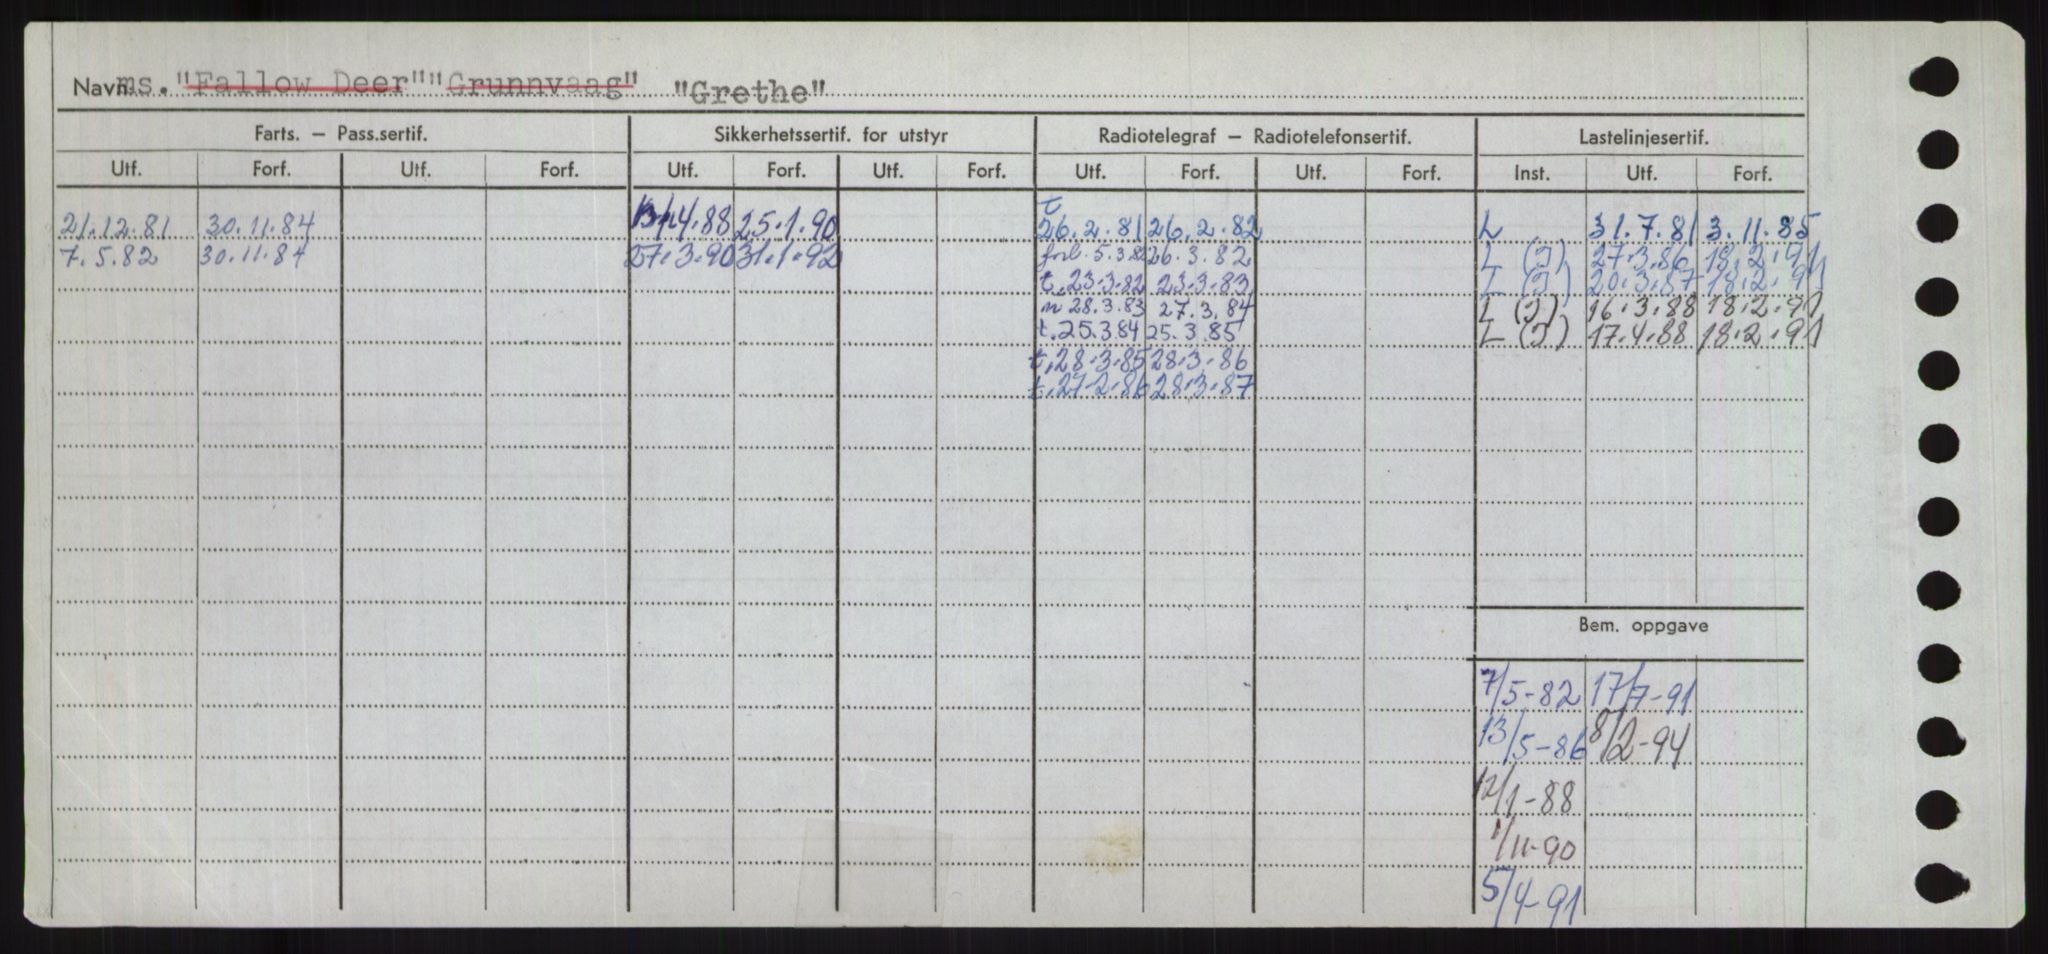 Navn ms. "Fallow Deer" "Grunnvaag" "Grethe"
Farts. – Pass.sertif. Sikkerhetssertif. for utstyr Radiotelegraf – Radiotelefonsertif. Lastelinjesertif.
Utf. Forf. Utf. Forf. Utf. Forf. Utf. Forf. Utf. Forf. Utf. Forf. Inst. Utf. Forf.
t
21.12.81 30.11.84 4.88 25.1.90 26.2.81 26.2.82 L 31.7.81 3.11.85
7.5.82 30.11.84 27.3.90 31.1.92 forl. 5.3.82 26.3.82 L (J) 27.3.86 18.2.91
t. 23.3.82 23.3.83 L (J) 20.3.87 18.2.91
m 28.3.83 27.3.84 L (J) 16.3.88 18.2.91
t. 25.3.84 25.3.85 L (J) 17.4.88 18.2.91
t. 28.3.85 28.3.86
t. 27.2.86 28.3.87
Bem. oppgave
7/5-82 17/7-91
13/5-86 8/2-94
12/1-88
1/11-90
5/4-91